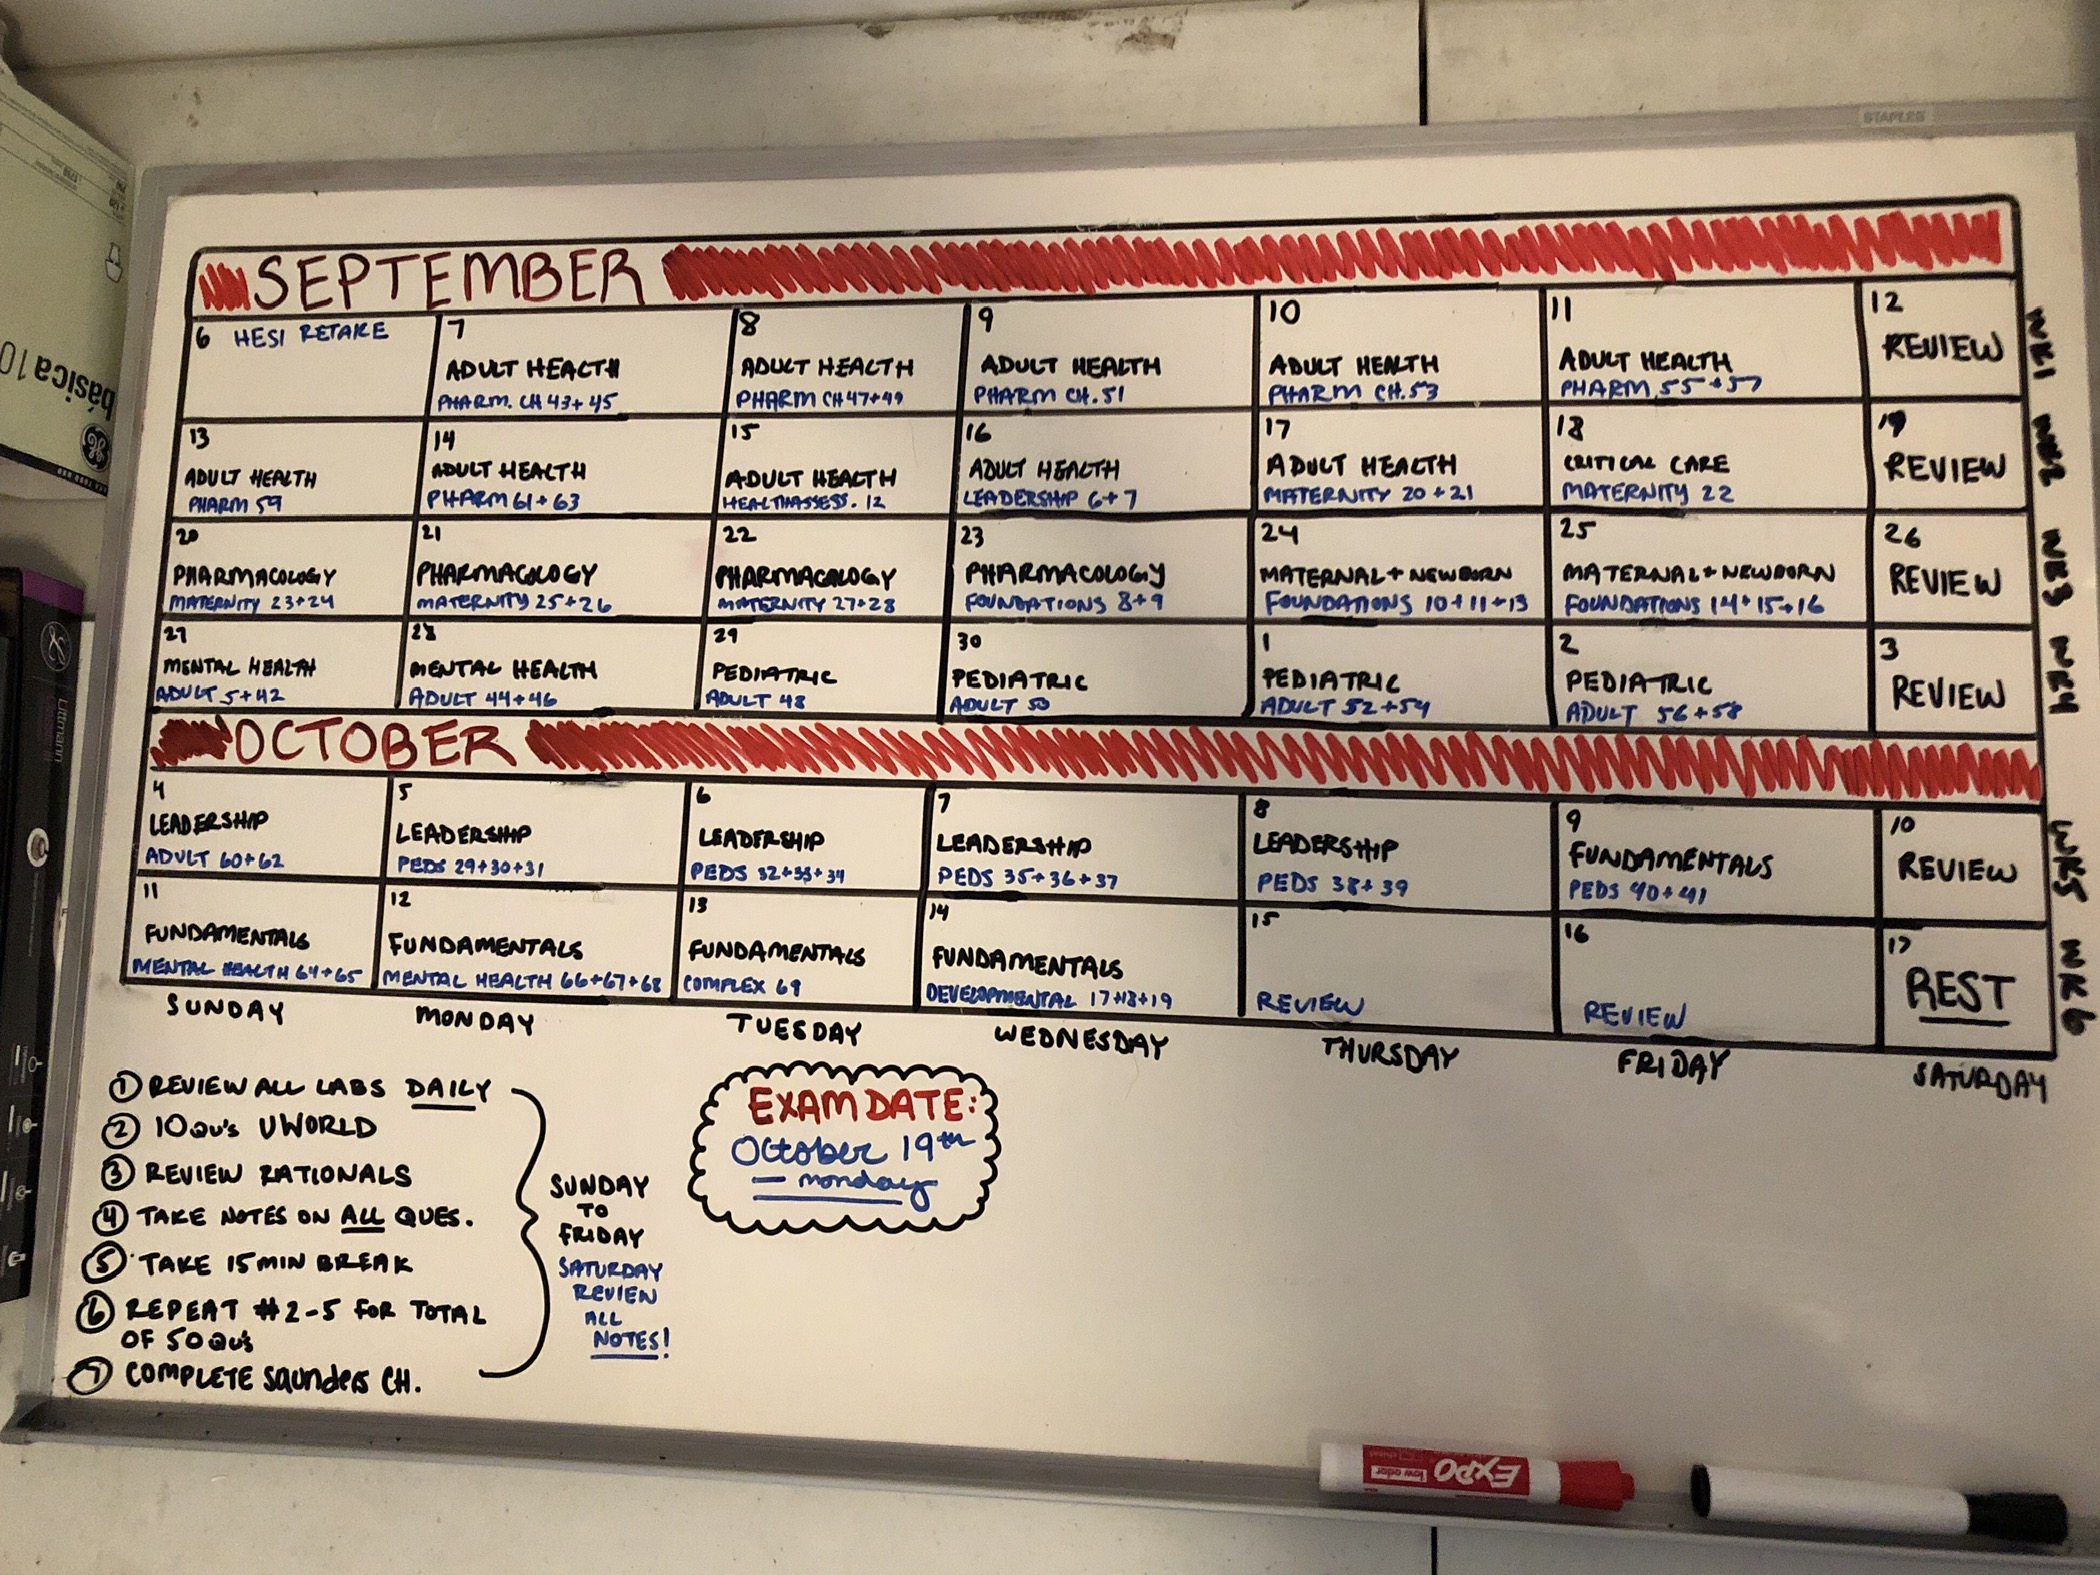 STAPLES
básica 10
Littmann
SEPTEMBER
6 HESI RETAKE
7
ADULT HEALTH
PHARM. CH 43+45
8
ADULT HEALTH
PHARM CH 47+49
9
ADULT HEALTH
PHARM CH. 51
10
ADULT HEALTH
PHARM CH. 53
11
ADULT HEALTH
PHARM 55+57
12
REVIEW
WK1
13
ADULT HEALTH
PHARM 59
14
ADULT HEALTH
PHARM 61+63
15
ADULT HEALTH
HEALTHASSESS. 12
16
ADULT HEALTH
LEADERSHIP 6+7
17
ADULT HEALTH
MATERNITY 20+21
18
CRITICAL CARE
MATERNITY 22
19
REVIEW
WK2
20
PHARMACOLOGY
MATERNITY 23+24
21
PHARMACOLOGY
MATERNITY 25+26
22
PHARMACOLOGY
MATERNITY 27+28
23
PHARMACOLOGY
FOUNDATIONS 8+9
24
MATERNAL+NEWBORN
FOUNDATIONS 10+11+13
25
MATERNAL+NEWBORN
FOUNDATIONS 14+15+16
26
REVIEW
WK3
27
MENTAL HEALTH
ADULT 5+42
28
MENTAL HEALTH
ADULT 44+46
29
PEDIATRIC
ADULT 48
30
PEDIATRIC
ADULT 50
1
PEDIATRIC
ADULT 52+54
2
PEDIATRIC
ADULT 56+58
3
REVIEW
WK4
OCTOBER
4
LEADERSHIP
ADULT 60+62
5
LEADERSHIP
PEDS 29+30+31
6
LEADERSHIP
PEDS 32+33+34
7
LEADERSHIP
PEDS 35+36+37
8
LEADERSHIP
PEDS 38+39
9
FUNDAMENTALS
PEDS 40+41
10
REVIEW
WK5
11
FUNDAMENTALS
MENTAL HEALTH 64+65
12
FUNDAMENTALS
MENTAL HEALTH 66+67+68
13
FUNDAMENTALS
COMPLEX 69
14
FUNDAMENTALS
DEVELOPMENTAL 17+18+19
15
REVIEW
16
REVIEW
17
REST
WK6
SUNDAY MONDAY TUESDAY WEDNESDAY THURSDAY FRIDAY SATURDAY
① REVIEW ALL LABS DAILY
② 10 QU'S UWORLD
③ REVIEW RATIONALS
④ TAKE NOTES ON ALL QUES.
⑤ TAKE 15 MIN BREAK
⑥ REPEAT #2-5 FOR TOTAL
OF 50 QU'S
⑦ COMPLETE Saunders CH.
SUNDAY
TO
FRIDAY
SATURDAY
REVIEW
ALL
NOTES!
EXAM DATE:
October 19th
— monday
EXPO
low odor